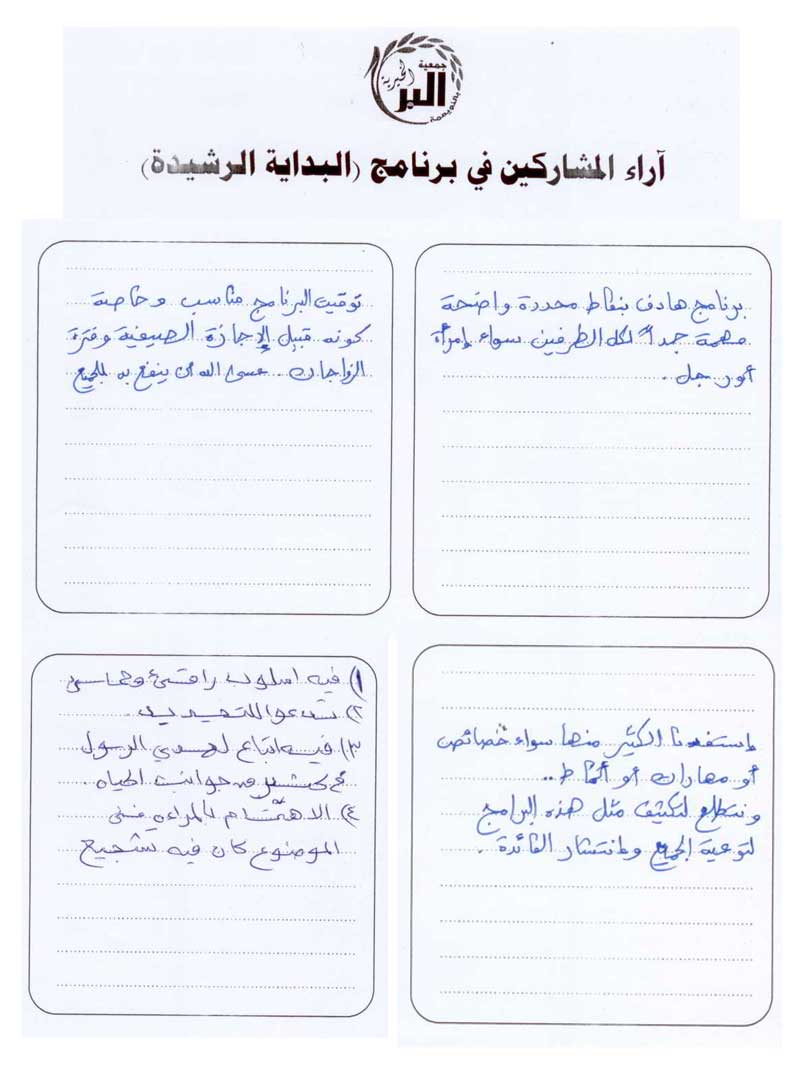 جمعية
البر
الخيرية
آراء المشاركين في برنامج (البداية الرشيدة)
برنامج هادف بنقاط محددة واضحة
مهمة جداً لكل الطرفين سواء إمرأة
أو رجل.
توقيت البرنامج مناسب وخاصة
كونه قبيل الإجازة الصيفية وفترة
الزواجات.. عسى الله أن ينفع به الجميع
إستفدنا الكثير منها سواء خصائص
أو مهارات أو أنماط..
ونتطلع لتكثيف مثل هذه البرامج
لتوعية الجميع وإنتشار الفائدة.
١) فيه اسلوب راقي وحماسي
٢)
٣) فيه اتباع لهدي الرسول
في كثير من جوانب الحياه.
٤) الاهتمام بالمراءه في
الموضوع كان فيه تشجيع